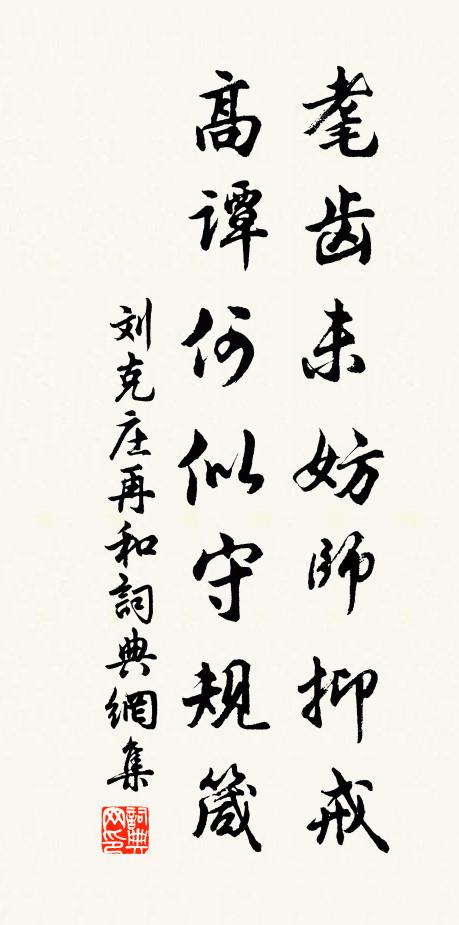 耄齿未妨師抑戒
高谭何似守规箴
刘克庄再和詞典網集
詞典网印